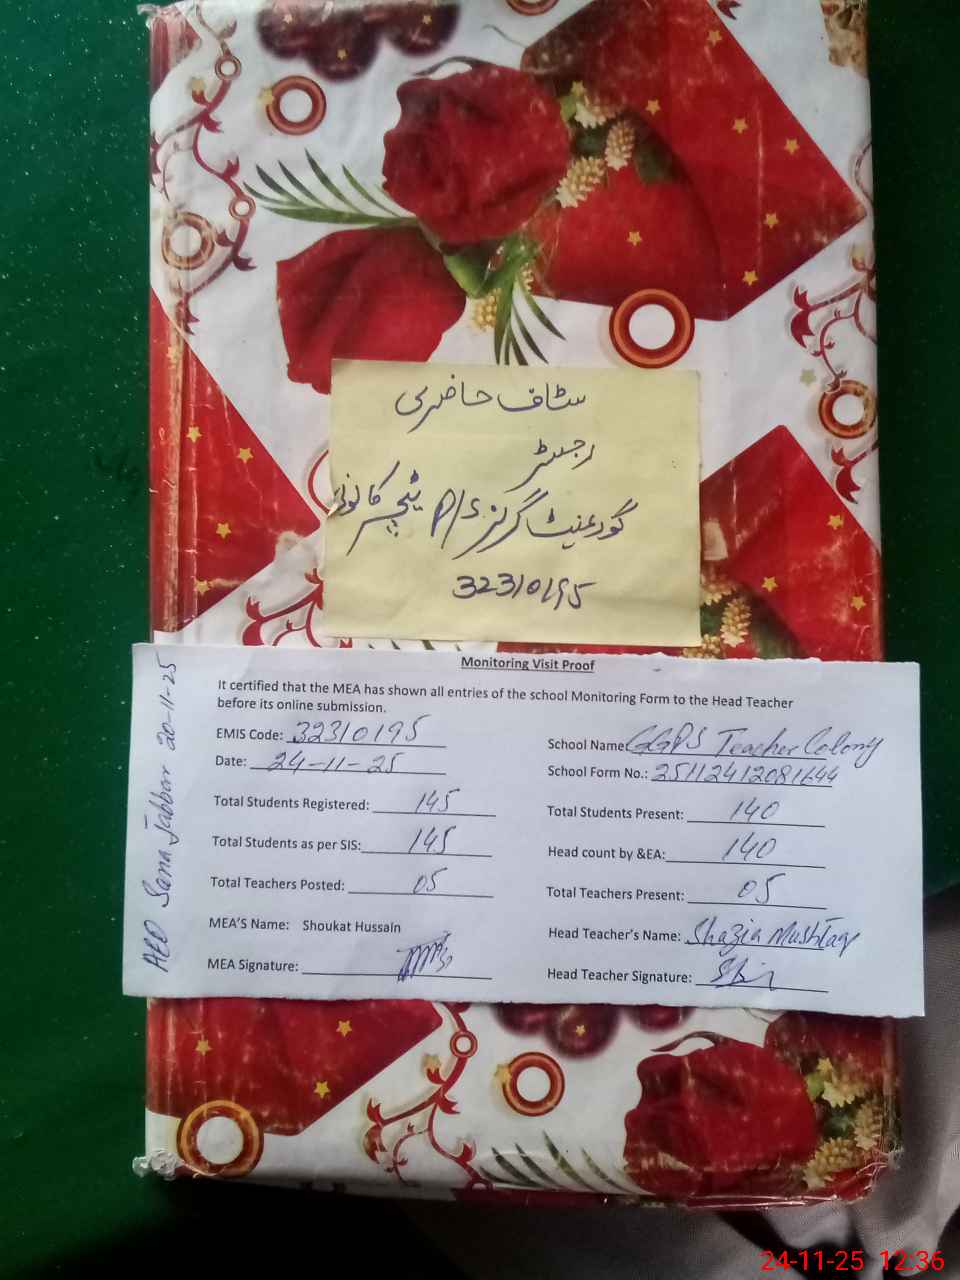 سٹاف حاضری
رجسٹر
گورنمنٹ گرلز P/S ٹیچر کالونی
32310195
Monitoring Visit Proof
It certified that the MEA has shown all entries of the school Monitoring Form to the Head Teacher
before its online submission.
EMIS Code: 32310195
School Name: GGPS Teacher Colony
Date: 24-11-25
School Form No.: 25112412081644
Total Students Registered: 145
Total Students Present: 140
Total Students as per SIS: 145
Head count by &EA: 140
Total Teachers Posted: 05
Total Teachers Present: 05
MEA'S Name: Shoukat Hussain
Head Teacher's Name: Shazia Mushtaq
MEA Signature:
Head Teacher Signature:
AEO Sana Jabbar 20-11-25
24-11-25 12:36